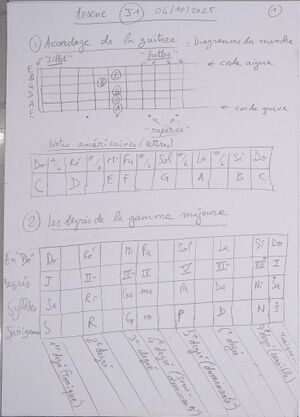 Arsene J1 04/10/2025 1
① Accordage de la guitare = Diagramme du manche
"Sillet" "frettes"
E ← corde aigue
B
G
D
A
E ← corde grave
"repères"
Notes américaines (lettres)
Do Ré Mi Fa Sol La Si Do
C D E F G A B C
② Les degrés de la gamme majeure
En "Do" Do Ré Mi Fa Sol La Si Do
Degrés I II III IV V VI VII I
Syllabes Sa Ri Ga ma Pa Da Ni Sa
Sarigama S R G m P D N S
1er degré (tonique)
2e degré
3e degré
4e degré
5e degré (dominante)
6e degré
7e degré (sensible)